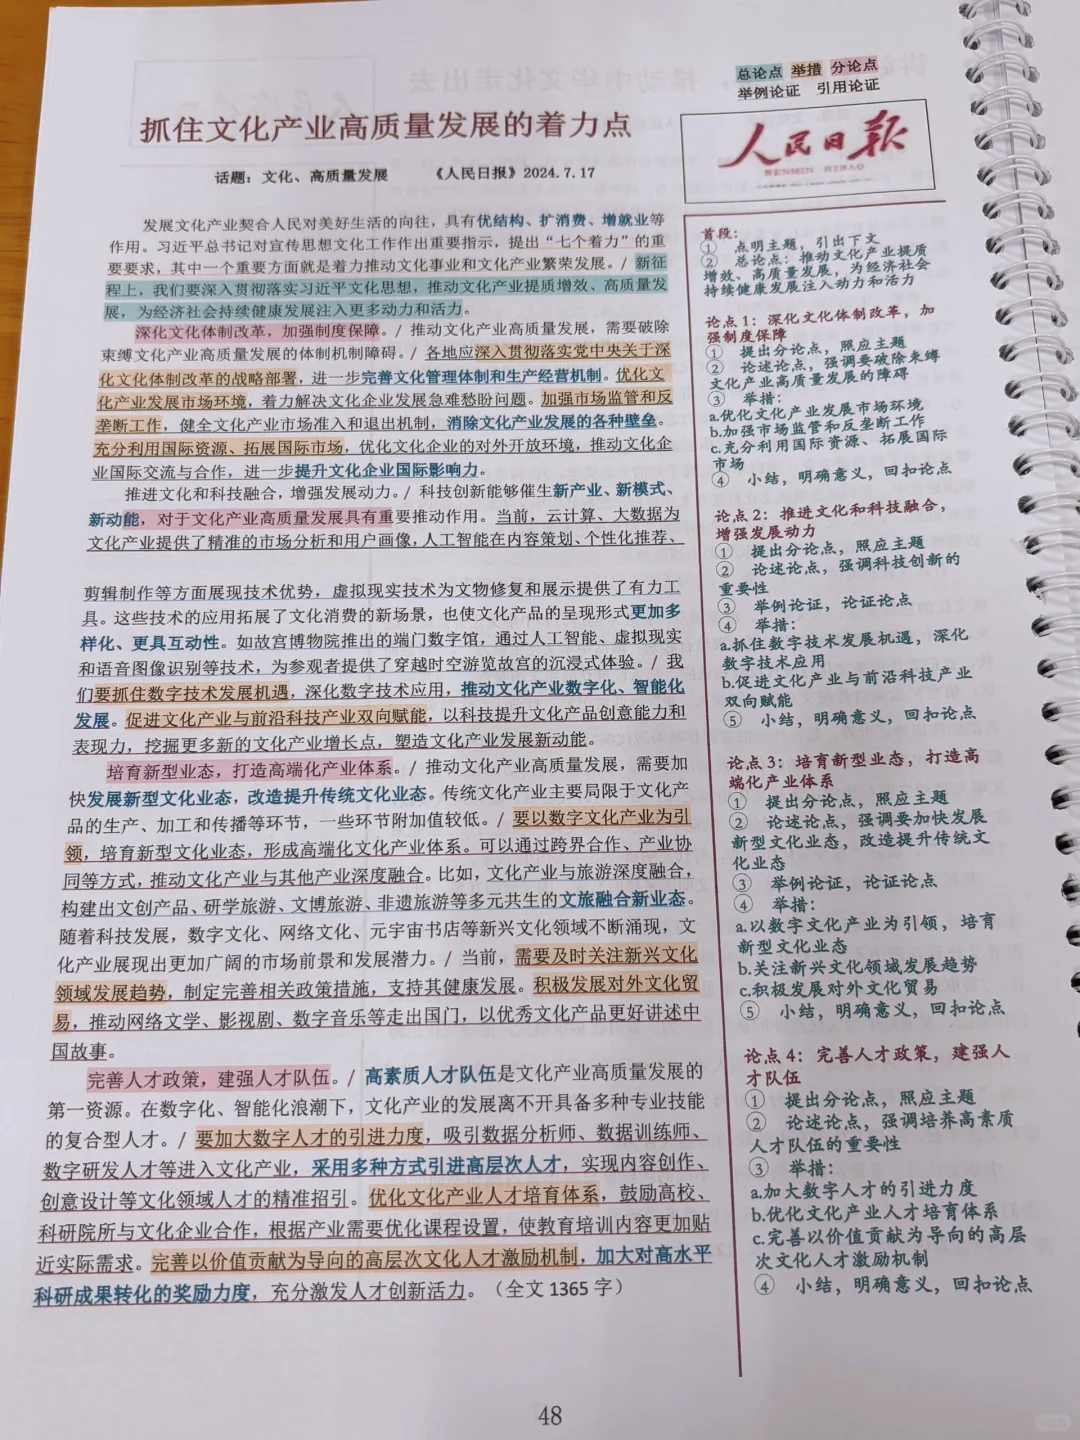 总论点 举措 分论点
举例论证 引用论证
抓住文化产业高质量发展的着力点
话题：文化、高质量发展 《人民日报》2024.7.17
人民日报
RENMIN RIBAO
发展文化产业契合人民对美好生活的向往，具有优结构、扩消费、增就业等
作用。习近平总书记对宣传思想文化工作作出重要指示，提出“七个着力”的重
要要求，其中一个重要方面就是着力推动文化事业和文化产业繁荣发展。/ 新征
程上，我们要深入贯彻落实习近平文化思想，推动文化产业提质增效、高质量发
展，为经济社会持续健康发展注入更多动力和活力。
深化文化体制改革，加强制度保障。/ 推动文化产业高质量发展，需要破除
束缚文化产业高质量发展的体制机制障碍。/ 各地应深入贯彻落实党中央关于深
化文化体制改革的战略部署，进一步完善文化管理体制和生产经营机制。优化文
化产业发展市场环境，着力解决文化企业发展急难愁盼问题。加强市场监管和反
垄断工作，健全文化产业市场准入和退出机制，消除文化产业发展的各种壁垒。
充分利用国际资源、拓展国际市场，优化文化企业的对外开放环境，推动文化企
业国际交流与合作，进一步提升文化企业国际影响力。
推进文化和科技融合，增强发展动力。/ 科技创新能够催生新产业、新模式、
新动能，对于文化产业高质量发展具有重要推动作用。当前，云计算、大数据为
文化产业提供了精准的市场分析和用户画像，人工智能在内容策划、个性化推荐、
剪辑制作等方面展现技术优势，虚拟现实技术为文物修复和展示提供了有力工
具。这些技术的应用拓展了文化消费的新场景，也使文化产品的呈现形式更加多
样化、更具互动性。如故宫博物院推出的端门数字馆，通过人工智能、虚拟现实
和语音图像识别等技术，为参观者提供了穿越时空游览故宫的沉浸式体验。/ 我
们要抓住数字技术发展机遇，深化数字技术应用，推动文化产业数字化、智能化
发展。促进文化产业与前沿科技产业双向赋能，以科技提升文化产品创意能力和
表现力，挖掘更多新的文化产业增长点，塑造文化产业发展新动能。
培育新型业态，打造高端化产业体系。/ 推动文化产业高质量发展，需要加
快发展新型文化业态，改造提升传统文化业态。传统文化产业主要局限于文化产
品的生产、加工和传播等环节，一些环节附加值较低。/ 要以数字文化产业为引
领，培育新型文化业态，形成高端化文化产业体系。可以通过跨界合作、产业协
同等方式，推动文化产业与其他产业深度融合。比如，文化产业与旅游深度融合，
构建出文创产品、研学旅游、文博旅游、非遗旅游等多元共生的文旅融合新业态。
随着科技发展，数字文化、网络文化、元宇宙书店等新兴文化领域不断涌现，文
化产业展现出更加广阔的市场前景和发展潜力。/ 当前，需要及时关注新兴文化
领域发展趋势，制定完善相关政策措施，支持其健康发展。积极发展对外文化贸
易，推动网络文学、影视剧、数字音乐等走出国门，以优秀文化产品更好讲述中
国故事。
完善人才政策，建强人才队伍。/ 高素质人才队伍是文化产业高质量发展的
第一资源。在数字化、智能化浪潮下，文化产业的发展离不开具备多种专业技能
的复合型人才。/ 要加大数字人才的引进力度，吸引数据分析师、数据训练师、
数字研发人才等进入文化产业，采用多种方式引进高层次人才，实现内容创作、
创意设计等文化领域人才的精准招引。优化文化产业人才培育体系，鼓励高校、
科研院所与文化企业合作，根据产业需要优化课程设置，使教育培训内容更加贴
近实际需求。完善以价值贡献为导向的高层次文化人才激励机制，加大对高水平
科研成果转化的奖励力度，充分激发人才创新活力。（全文 1365 字）
首段：
① 点明主题，引出下文
② 总论点：推动文化产业提质
增效、高质量发展，为经济社会
持续健康发展注入动力和活力
论点 1：深化文化体制改革，加
强制度保障
① 提出分论点，照应主题
② 论述论点，强调要破除束缚
文化产业高质量发展的障碍
③ 举措：
a.优化文化产业发展市场环境
b.加强市场监管和反垄断工作
c.充分利用国际资源、拓展国际
市场
④ 小结，明确意义，回扣论点
论点 2：推进文化和科技融合，
增强发展动力
① 提出分论点，照应主题
② 论述论点，强调科技创新的
重要性
③ 举例论证，论证论点
④ 举措：
a.抓住数字技术发展机遇，深化
数字技术应用
b.促进文化产业与前沿科技产业
双向赋能
⑤ 小结，明确意义，回扣论点
论点 3：培育新型业态，打造高
端化产业体系
① 提出分论点，照应主题
② 论述论点，强调要加快发展
新型文化业态，改造提升传统文
化业态
③ 举例论证，论证论点
④ 举措：
a.以数字文化产业为引领，培育
新型文化业态
b.关注新兴文化领域发展趋势
c.积极发展对外文化贸易
⑤ 小结，明确意义，回扣论点
论点 4：完善人才政策，建强人
才队伍
① 提出分论点，照应主题
② 论述论点，强调培养高素质
人才队伍的重要性
③ 举措：
a.加大数字人才的引进力度
b.优化文化产业人才培育体系
c.完善以价值贡献为导向的高层
次文化人才激励机制
④ 小结，明确意义，回扣论点
48